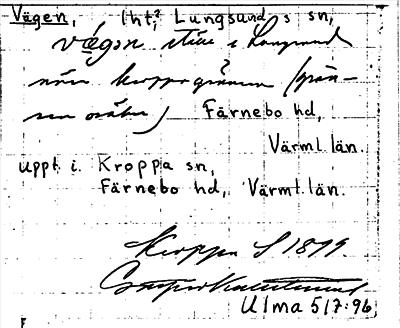 Vägen, lht,? Lungsund s sn,
vägen ställe i Lungsund
nära Kroppagränsen (grän-
sen osäker) Färnebo hd,
Värml. län.
uppt. i. Kroppa sn,
Färnebo hd, Värml. län.
Kroppa S 1899.
Ulma 517:96
F